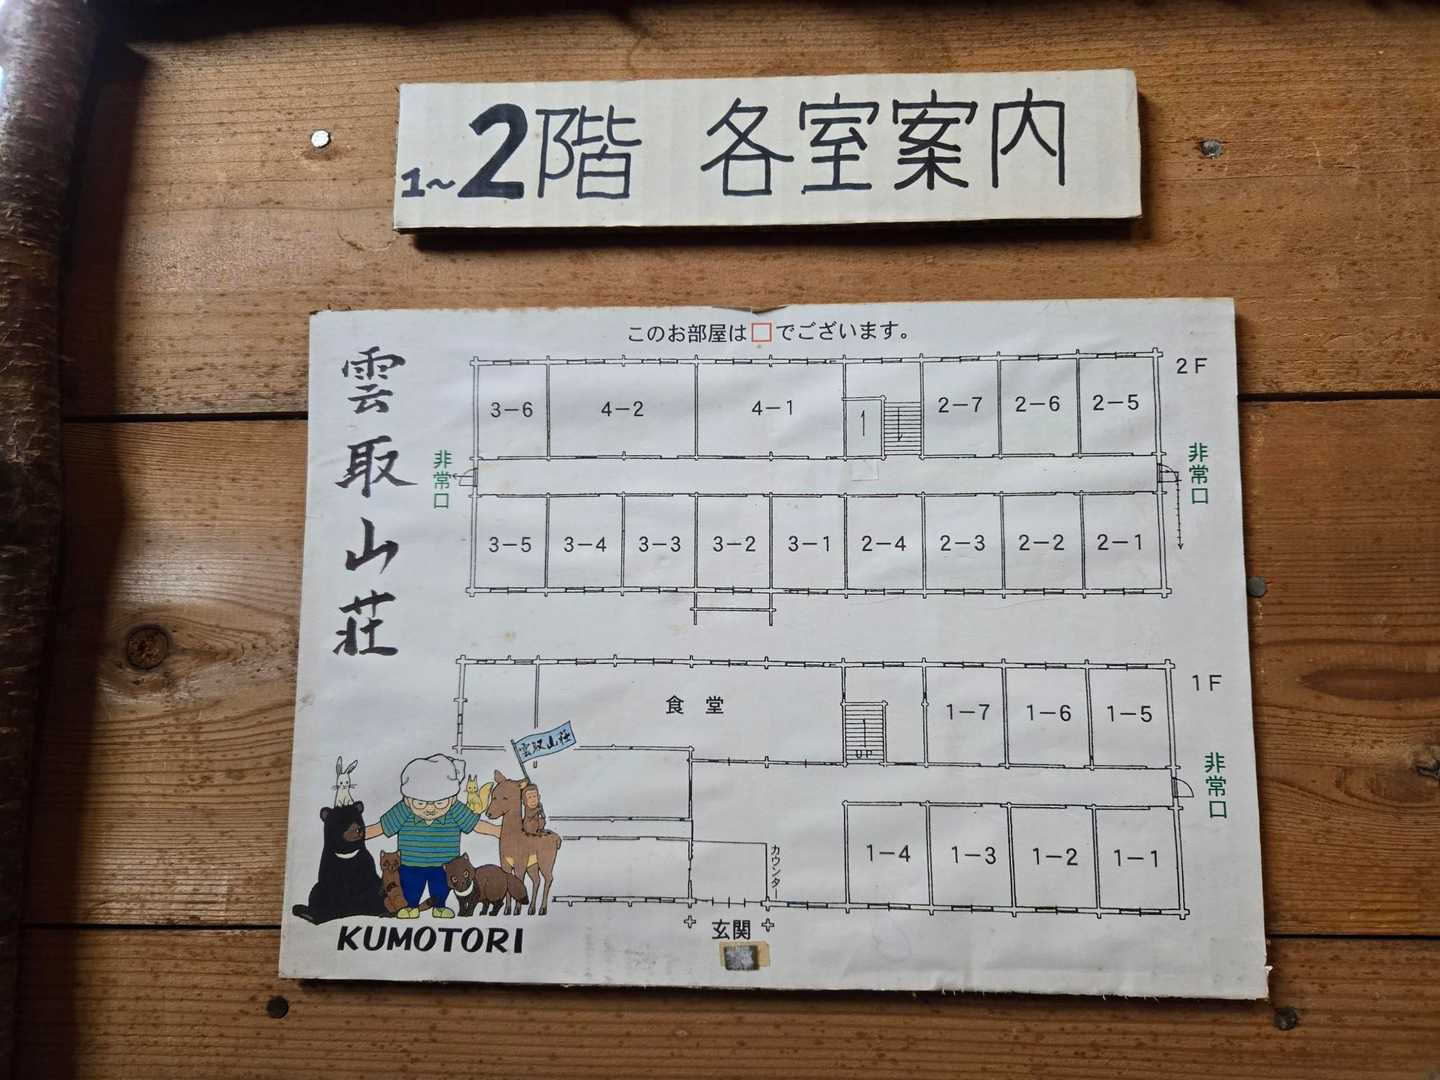 1~2階 各室案内
このお部屋は□でございます。
雲取山荘
2F
3-6 4-2 4-1 2-7 2-6 2-5
非常口
非常口
3-5 3-4 3-3 3-2 3-1 2-4 2-3 2-2 2-1
1F
食堂
UP
1-7 1-6 1-5
非常口
雲取山荘
カウンター
1-4 1-3 1-2 1-1
玄関
KUMOTORI